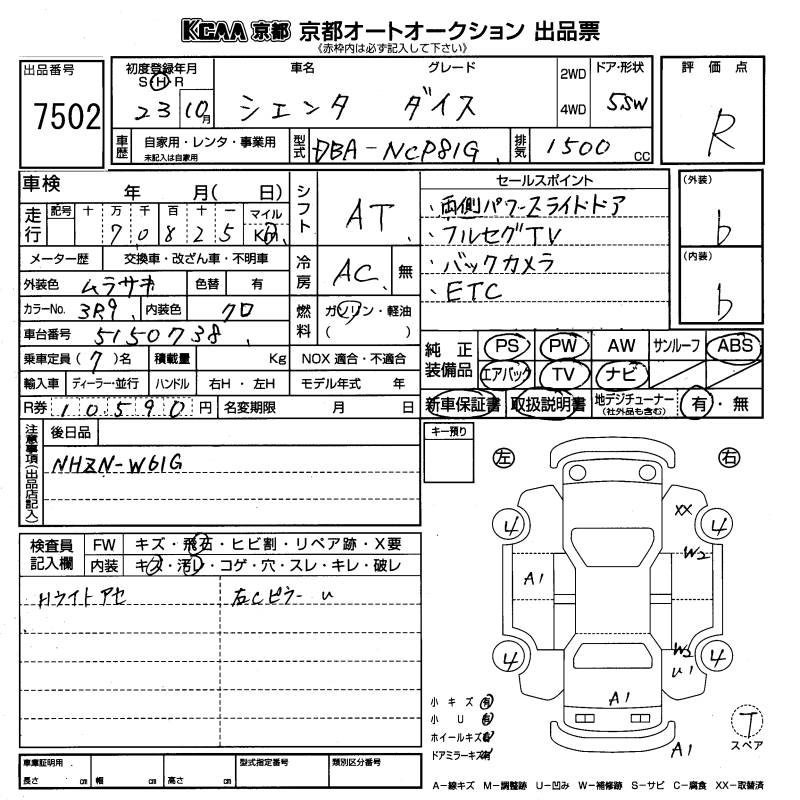 KCAA 京都 京都オートオークション 出品票
《赤枠内は必ず記入して下さい》
出品番号
7502
初度登録年月
S H R
23 10月
車名 グレード
シエンタ ダイス
2WD
4WD
ドア・形状
5SW
評価点
R
車歴
自家用・レンタ・事業用
未記入は自家用
型式
DBA-NCP81G
排気
1500 cc
車検 年 月( 日)
走行
記号 十 万 千 百 十 一 マイル
7 0 8 2 5 Km
メーター歴 交換車・改ざん車・不明車
外装色 ムラサキ 色替 有
カラーNo. 3R9 内装色 クロ
車台番号 5150738
乗車定員 (7)名 積載量 Kg
NOX 適合・不適合
輸入車 ディーラー・並行 ハンドル 右H・左H モデル年式 年
R券 10590 円 名変期限 月 日
シフト
AT
冷房
AC 無
燃料
ガソリン・軽油
( )
セールスポイント
・両側パワースライドドア
・フルセグTV
・バックカメラ
・ETC
(外装)
b
(内装)
b
純正装備品
PS PW AW サンルーフ ABS
エアバック TV ナビ
新車保証書 取扱説明書 地デジチューナー
(社外品も含む)
有・無
注意事項(出品店記入)
後日品
NHZN-W61G
キー預り
検査員記入欄
FW キズ・飛石・ヒビ割・リペア跡・X要
内装 キズ・汚レ・コゲ・穴・スレ・キレ・破レ
Hライトアセ
右Cピラー u
左 右
4 4
XX
W2
A1
W3
U1
4 4
A1
A1
小キズ 有
小U 有
ホイールキズ 有
ドアミラーキズ 有
T
スペア
車庫証明用
長さ cm 幅 cm 高さ cm
型式指定番号
類別区分番号
A-線キズ M-調整跡 U-凹み W-補修跡 S-サビ C-腐食 XX-取替済